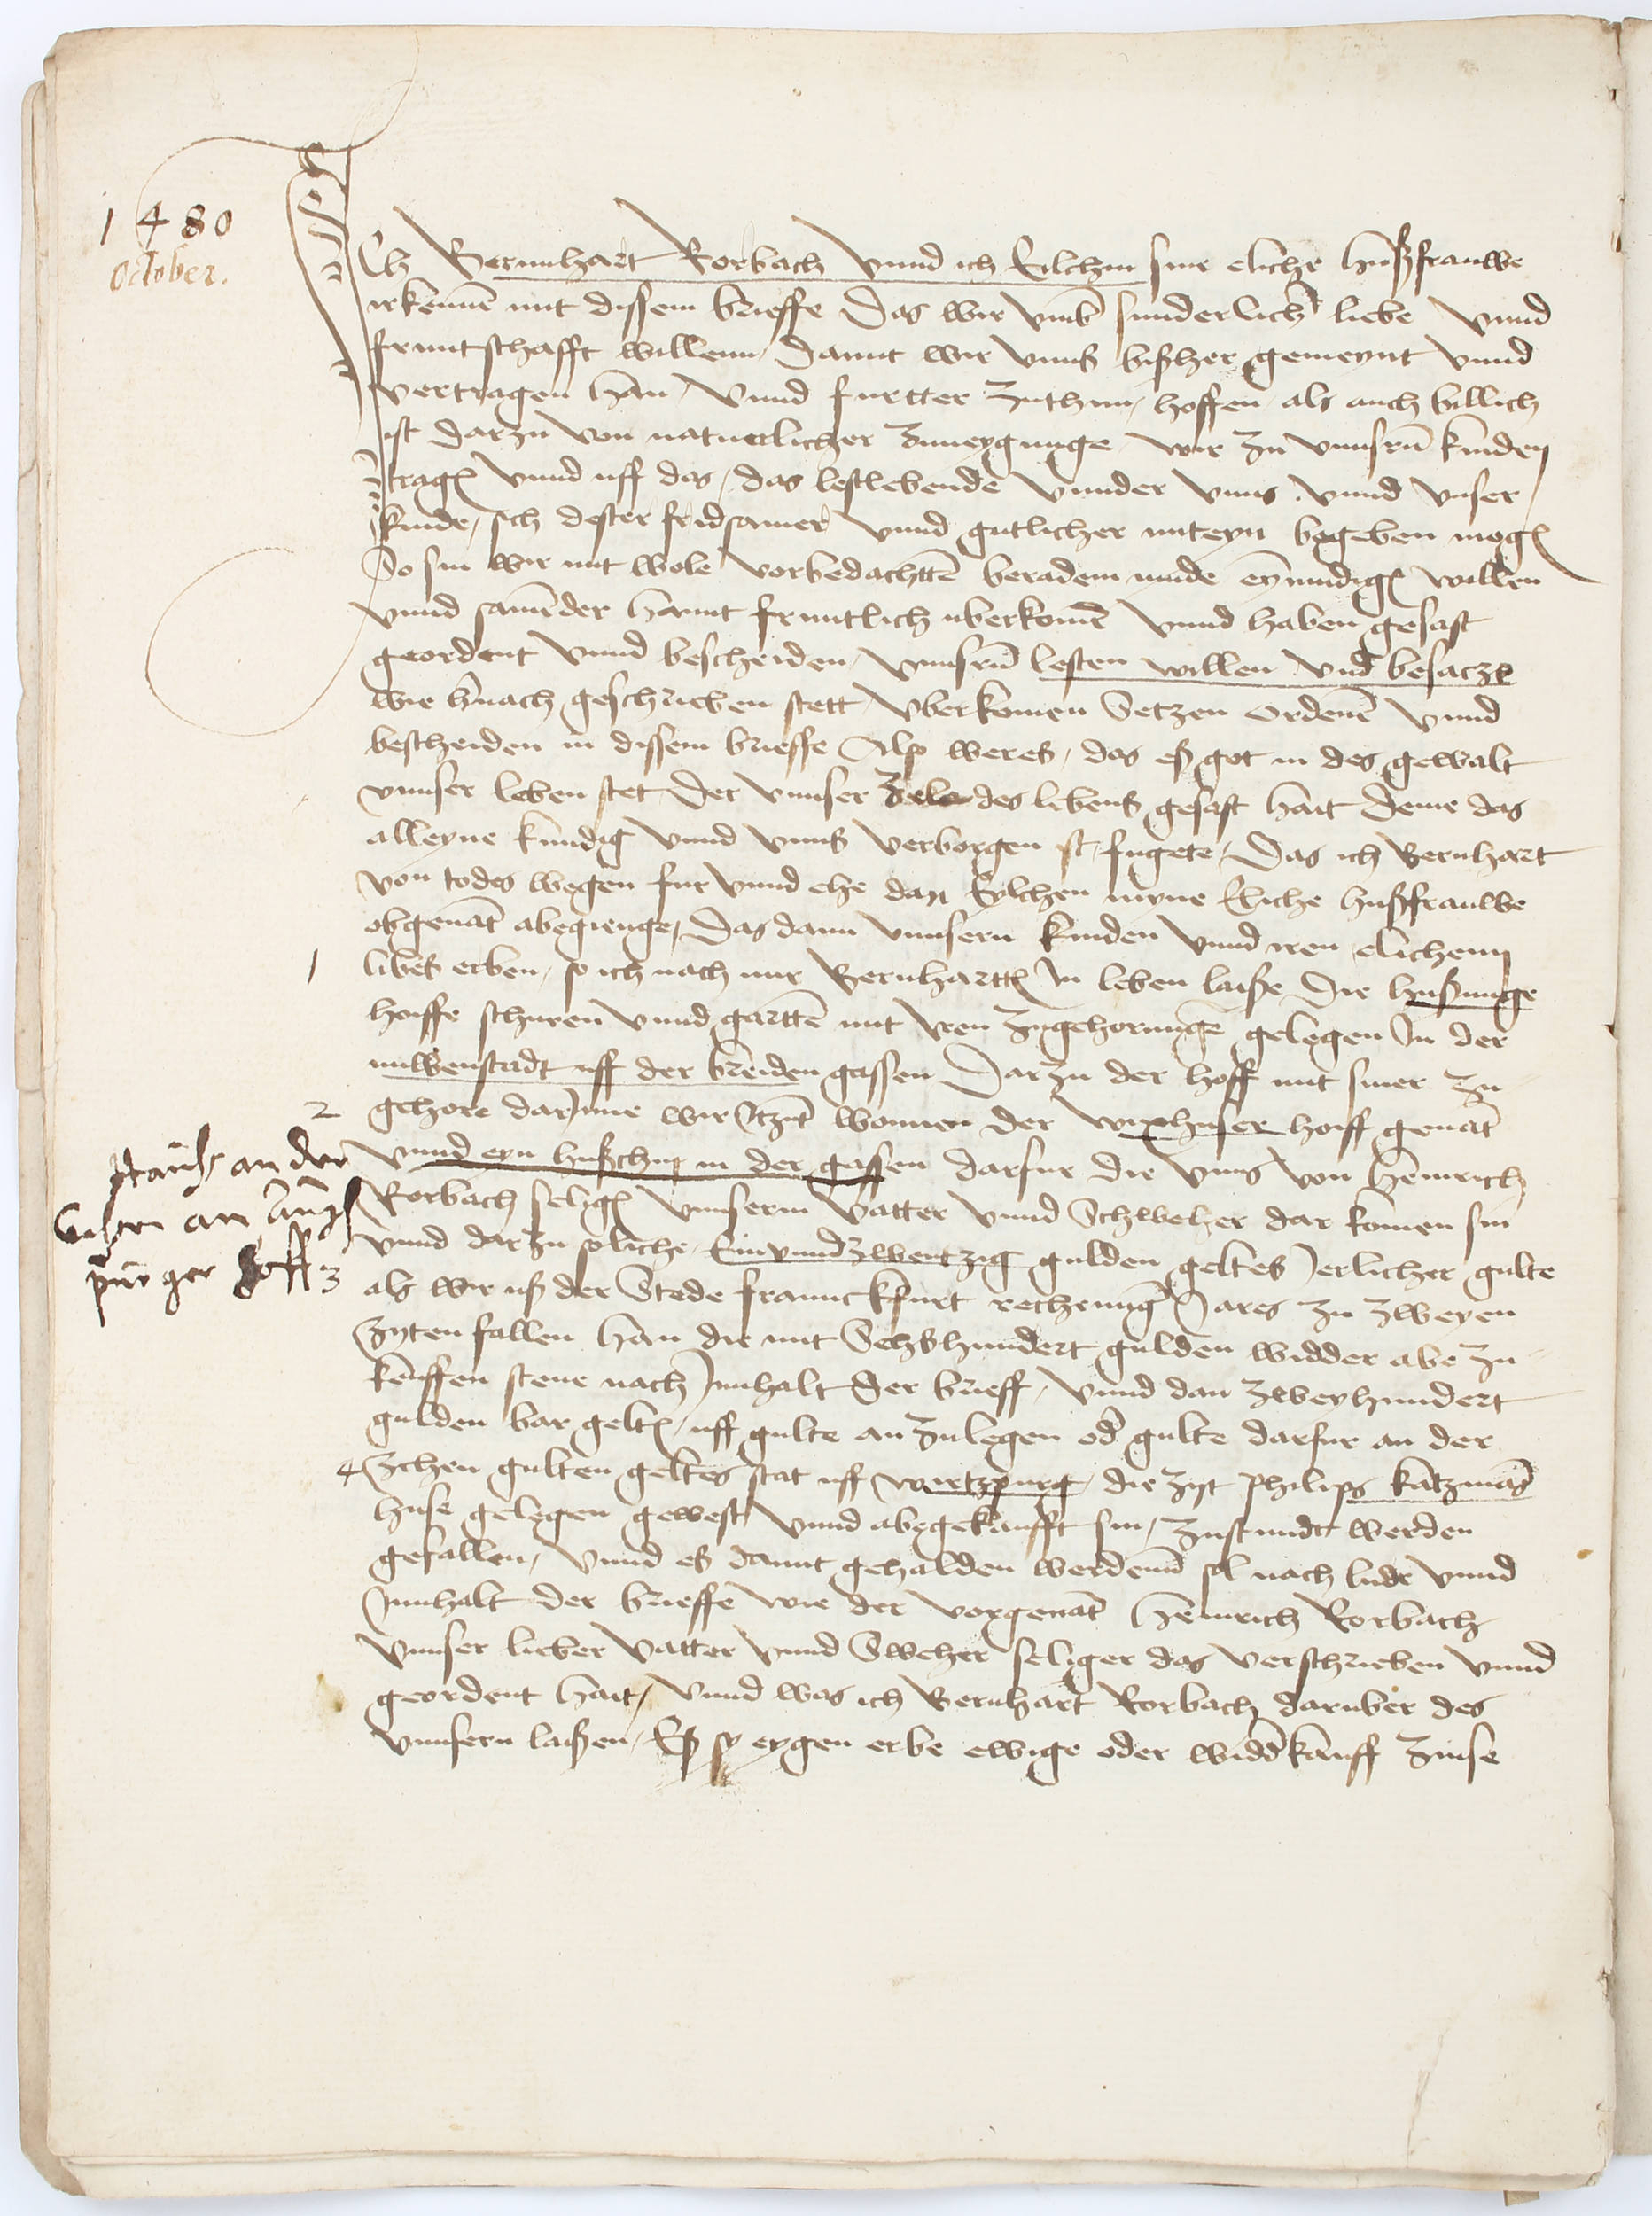 1480
October.
Ich Bernnhart Rorbach vnnd ich Eilchin sine eliche hußfrauwe
irkennē mit dissem brieffe Das wir vmb sunderlich liebe vnnd
fruntschafft willenn, damit wir vnns bißher gemeynt vnnd
vertragen han, vnnd furtter zuthun, hoffen als auch billich
ist darzu von naturlicher zuneygunge wir zu vnnsrn̄ kinden
tragē vnnd uff das, das lestlebende vnnder vnns vnnd vnser
kinde, sich dester fridsamer vnnd gutlicher miteyn begeben mogē
So sin wir mit wole vorbedachttē beradem mude eynmudigē willen
vnnd samēder hannt fruntlich uberkomē vnnd haben gesast
geordent vnnd bescheiden, vnnsrn̄ lesten willen vnd besacze
wie hernach geschrieben stett vberkomen Setzen ordenē vnnd
bescheiden in dissem brieffe Also weres, das eß got in des gewalt
vnnser leben stet Der vnnser Zele des lebens gesast hait deme das
alleyne kundig vnnd vnns verborgen ist, fugete, Das ich Bernhart
von todes wegen fur vnnd ehe dan Eylchen myne Eliche hußfrauwe
obgenāt abegienge, Das dann vnnsern kinden vnnd iren elichenn
1 libes erben, so ich nach mir Bernharttē In leben laiße Die hußunge
hoiffe schuren vnnd garttē mit iren zugehorunge gelegen In der
nuwenstadt uff der breiden gassen Darzu der hoff mit siner zu
2 gehore darinne wir Itzūt wonnen der wixhuser hoiff genāt
vnnd eyn hußchin in der gassen darfur die vnns von Heinrich
Hauß an der
Rorbach seligē vnnserm vatter vnnd Schweher dar komen sin
vnnd darzu soliche Einvnndzwentzig gulden geltes Jerlicher gulte
purger hoff
3 als wir uß der Stede frannckfurt rechenūg Jares zu zweyen
Zyten fallen han die mit Sehßhundert gulden widder abe zu
keuffen stene nach Innhalt der brieff, vnnd dan zweyhundert
gulden bar geltē, uff gulte an zulegen od̄ gulte darfur an der
4 Zehen gulten geltes stat uff wirtzpurg, die zyt Philips katzmās
huse gelegen gewest vnnd abegekaufft sin, zustundt werden
gefallen, vnnd eß damit gehalden werdenn̄ sol nach lude vnnd
Innhalt der brieffe wie der vorgenāt Heinrich Rorbach
vnnser lieber vatter vnnd Sweher seliger das verschrieben vnnd
geordent hait, vnnd was ich Bernhart Rorbach daruber des
vnnsern laißen, Eß sy eygen erbe ewige oder widdkauff zinse